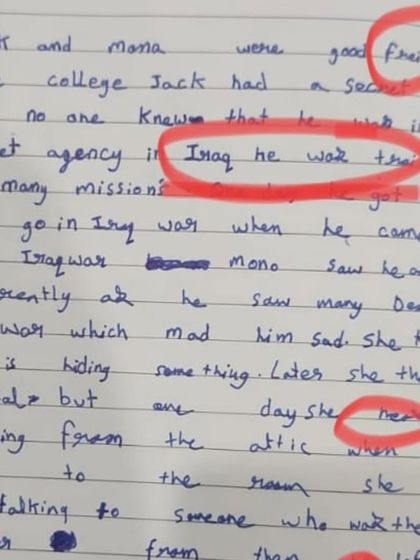 k and mona were good frei
college Jack had a secret
no one knew that he was i
et agency in Iraq he waz trai
many mission's One day he got
go in Irq war when he came
Iraq war mono saw he a
rently az he saw many Dea
war which mad him sad. She t
is hiding some thing. Later she th
al but one day she hea
ing from the attic when
to the room she
talking to someone who waz the
er from than